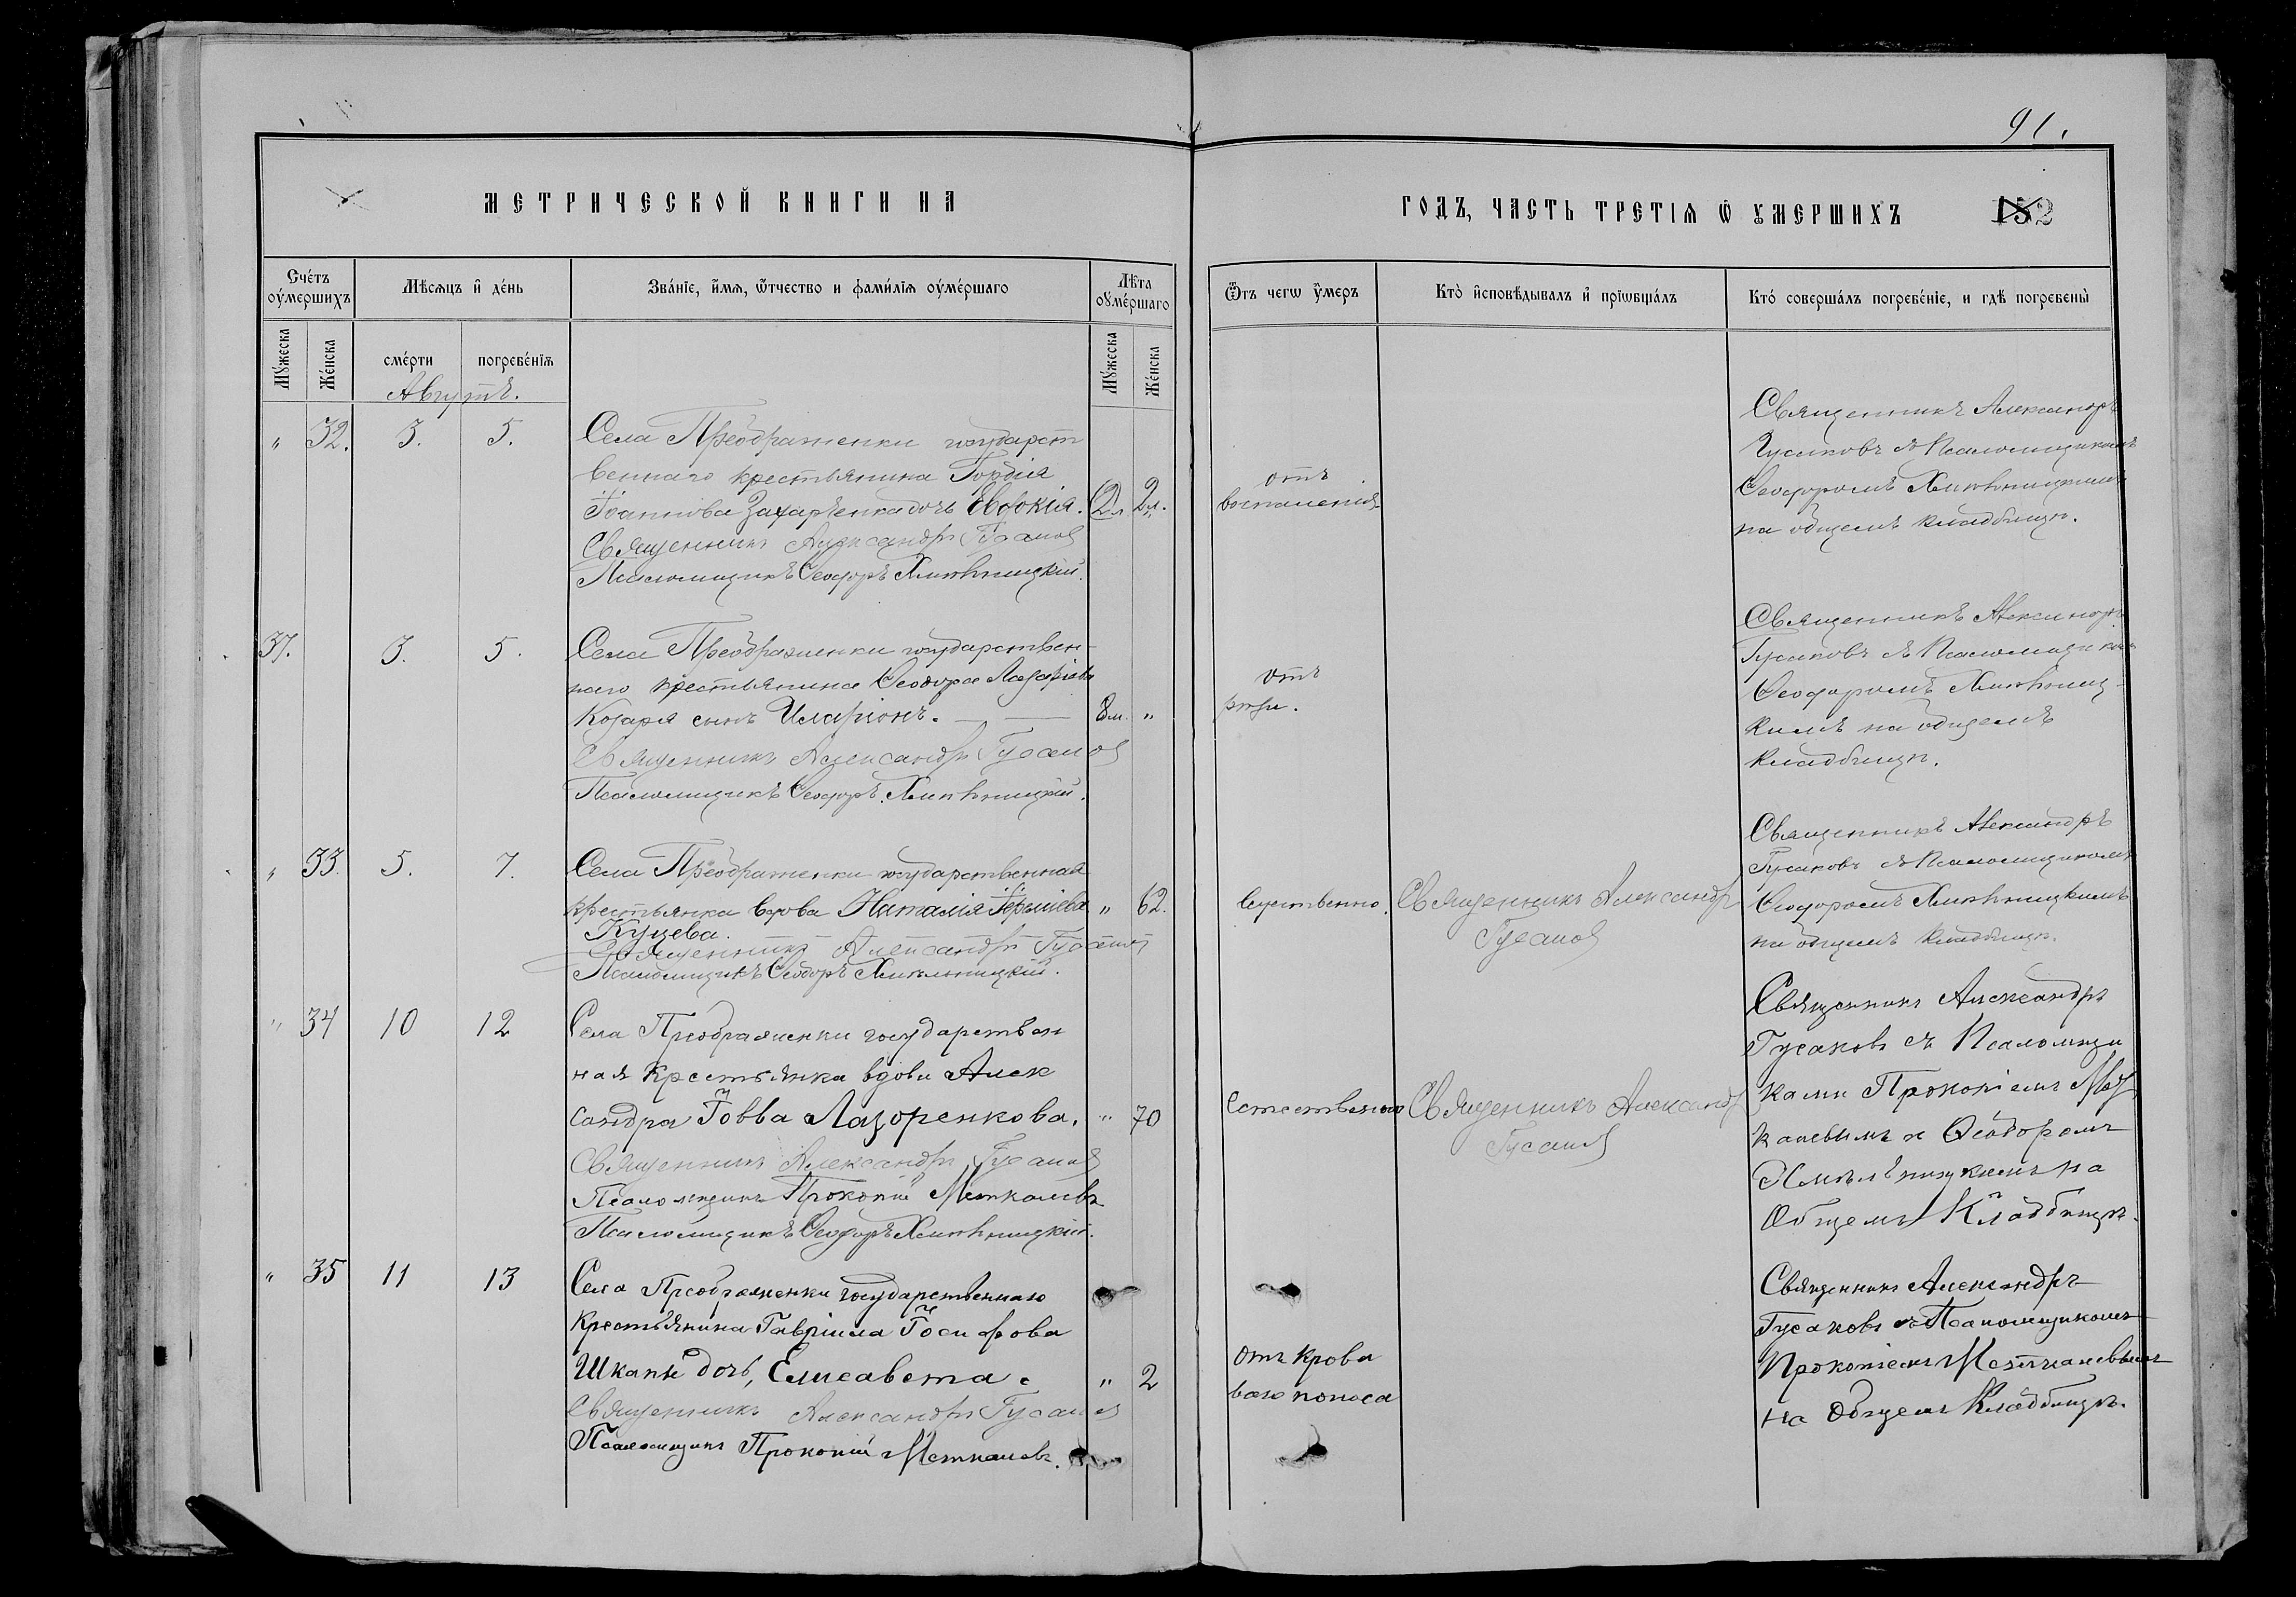 91.
МЕТРИЧЕСКОЙ КНИГИ НА
ГОДЪ, ЧАСТЬ ТРЕТІѦ Ѿ ОУМЕРШИХЪ
152
Сче́тъ оу́мершихъ
Мѣсяцъ и҆ де́нь
Зва́нїе, и҆́мѧ, ѿтчество и фами́лїѧ оуме́ршаго
Лѣта оуме́ршаго
Ѿтъ чегѡ ᲂу҆́меръ
Кто̀ и҆сповѣдывалъ и҆ прїѡбща́лъ
Кто́ соверша́лъ погребе́нїе, и гдѣ погребены̀
Мꙋ́жеска
Же́нска
сме́рти
погребе́нїѧ
Мꙋ́жеска
Же́нска
Августъ.
" 32. 3. 5.
Села Преображенки государст
веннаго крестьянина Гордія
Іоаннова Захаренка дочь Евдокія.
2 л.
Священникъ Александръ Гусаков
Псаломщикъ Ѳеодоръ Хмѣльницкій.
отъ
воспаленія
Священникъ Александръ
Гусаковъ съ Псаломщикомъ
Ѳеодоромъ Хмѣльницкимъ
на общемъ кладбищѣ.
37. 3. 5.
Села Преображенки государствен-
наго крестьянина Ѳеодора Лазарева
Козаря сынъ Иларіонъ.
8 м. "
Священникъ Александръ Гусаков
Псаломщикъ Ѳеодоръ Хмѣльницкій.
отъ
Священникъ Александръ
Гусаковъ съ Псаломщиком
Ѳеодоромъ Хмѣльниц-
кимъ на общемъ
кладбищѣ.
" 33. 5. 7.
Села Преображенки государственная
крестьянка вдова Наталія
Куцева.
" 62.
Священникъ Александръ Гусаков
Псаломщикъ Ѳеодоръ Хмѣльницкій.
Естественно.
Священникъ Александр
Гусаков
Священникъ Александръ
Гусаковъ съ Псаломщикомъ
Ѳеодоромъ Хмѣльницкимъ
на общемъ кладбищѣ.
" 34 10 12
Села Преображенки государствен
ная крестьянка вдова Алек
сандра Іовва Лазоренкова.
" 70
Священникъ Александръ Гусаков
Псаломщикъ Прокопій Меткалевъ
Псаломщикъ Ѳеодоръ Хмѣльницкій.
Естественно
Священникъ Александр
Гусаков
Священникъ Александръ
Гусаковъ съ Псаломщи
ками Прокопіемъ Мет
калевымъ и Ѳеодоромъ
Хмѣльницкимъ на
Общемъ Кладбищѣ.
" 35 11 13
Села Преображенки государственнаго
крестьянина Гавріила Іосифова
Шкапы дочь, Елисавета.
" 2
Священникъ Александръ Гусаков
Псаломщикъ Прокопій Меткалевъ.
отъ крова
ваго поноса
Священникъ Александръ
Гусаковъ съ Псаломщикомъ
Прокопіемъ Меткалевымъ
на Общемъ Кладбищѣ.